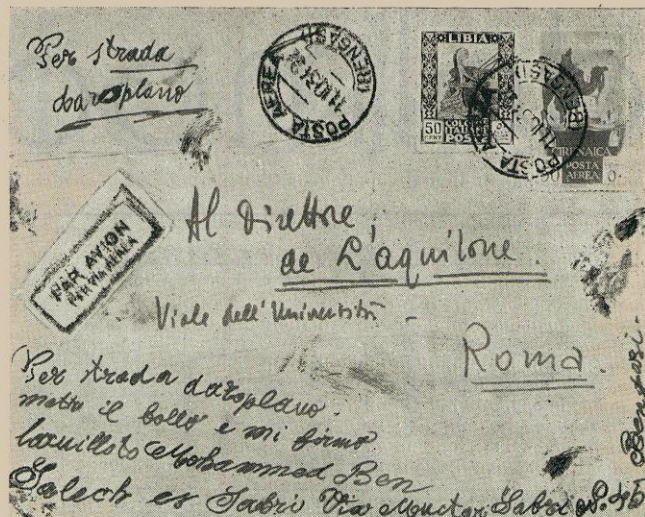 Per strada
daroplano
POSTA AEREA
(BENGASI)
LIBIA
50
CENT
COLONIE
ITALIANE
POSTE
POSTA
BENGASI
CIRENAICA
POSTA
AEREA
PAR AVION
PER VIA AEREA
Al Direttore,
de L'aquilone.
Viale dell'Università -
Roma.
Per strada daroplano.
metto il bollo e mi firmo
Mohammed Ben
Salech es Sabri Via
Bengasi.